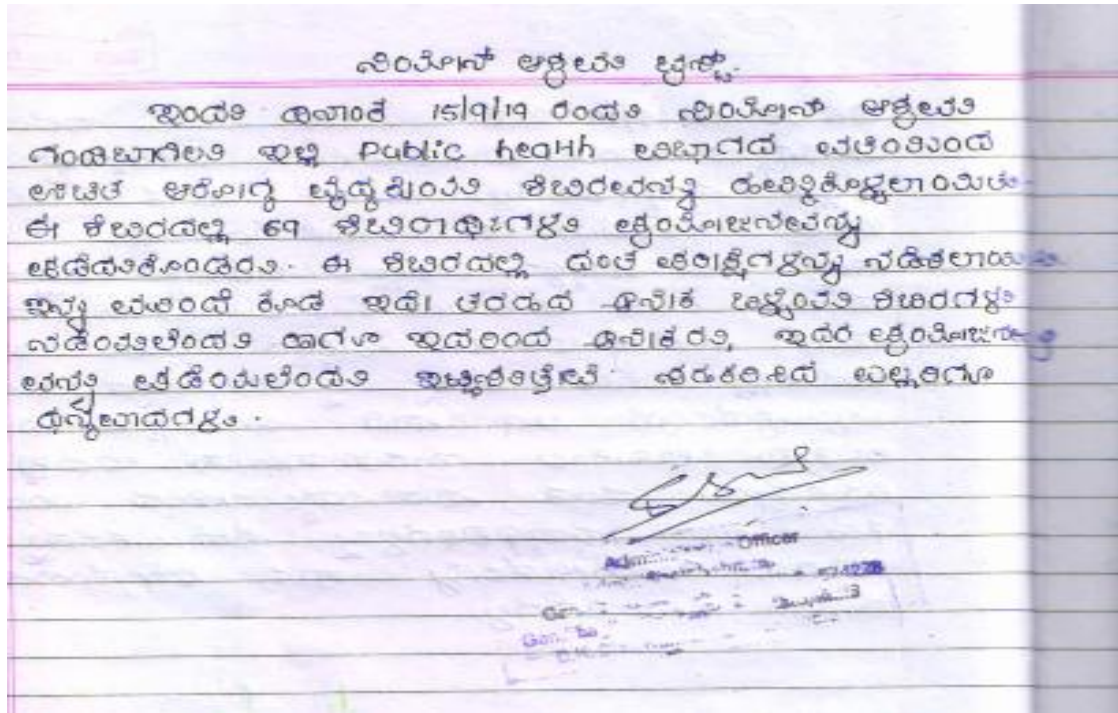 ಸಿಯೋನ್ ಆಶ್ರಮ ಟ್ರಸ್ಟ್.
ಇಂದು ದಿನಾಂಕ 15/9/19 ರಂದು ಸಿಯೋನ್ ಆಶ್ರಮ
ಗಂಡಿಬಾಗಿಲು ಇಲ್ಲಿ Public health ವಿಭಾಗದ ವತಿಯಿಂದ
ಉಚಿತ ಆರೋಗ್ಯ ವೈದ್ಯಕೀಯ ಶಿಬಿರವನ್ನು ಹಮ್ಮಿಕೊಳ್ಳಲಾಯಿತು.
ಈ ಶಿಬಿರದಲ್ಲಿ 69 ಶಿಬಿರಾರ್ಥಿಗಳು ಪ್ರಯೋಜನವನ್ನು
ಪಡೆದುಕೊಂಡರು. ಈ ಶಿಬಿರದಲ್ಲಿ ದಂತ ಪರೀಕ್ಷೆಗಳನ್ನು ನಡೆಸಲಾಯಿತು
ಇನ್ನು ಮುಂದೆ ಕೂಡ ಇದೇ ತರಹದ ಅನೇಕ ಒಳ್ಳೆಯ ಶಿಬಿರಗಳು
ನಡೆಯಲೆಂದು ಹಾಗೂ ಇದರಿಂದ ಅನೇಕರು, ಇದರ ಪ್ರಯೋಜನ
ವನ್ನು ಪಡೆಯಲೆಂದು ಇಚ್ಛಿಸುತ್ತೇವೆ. ಸಹಕರಿಸಿದ ಎಲ್ಲರಿಗೂ
ಧನ್ಯವಾದಗಳು.
Officer